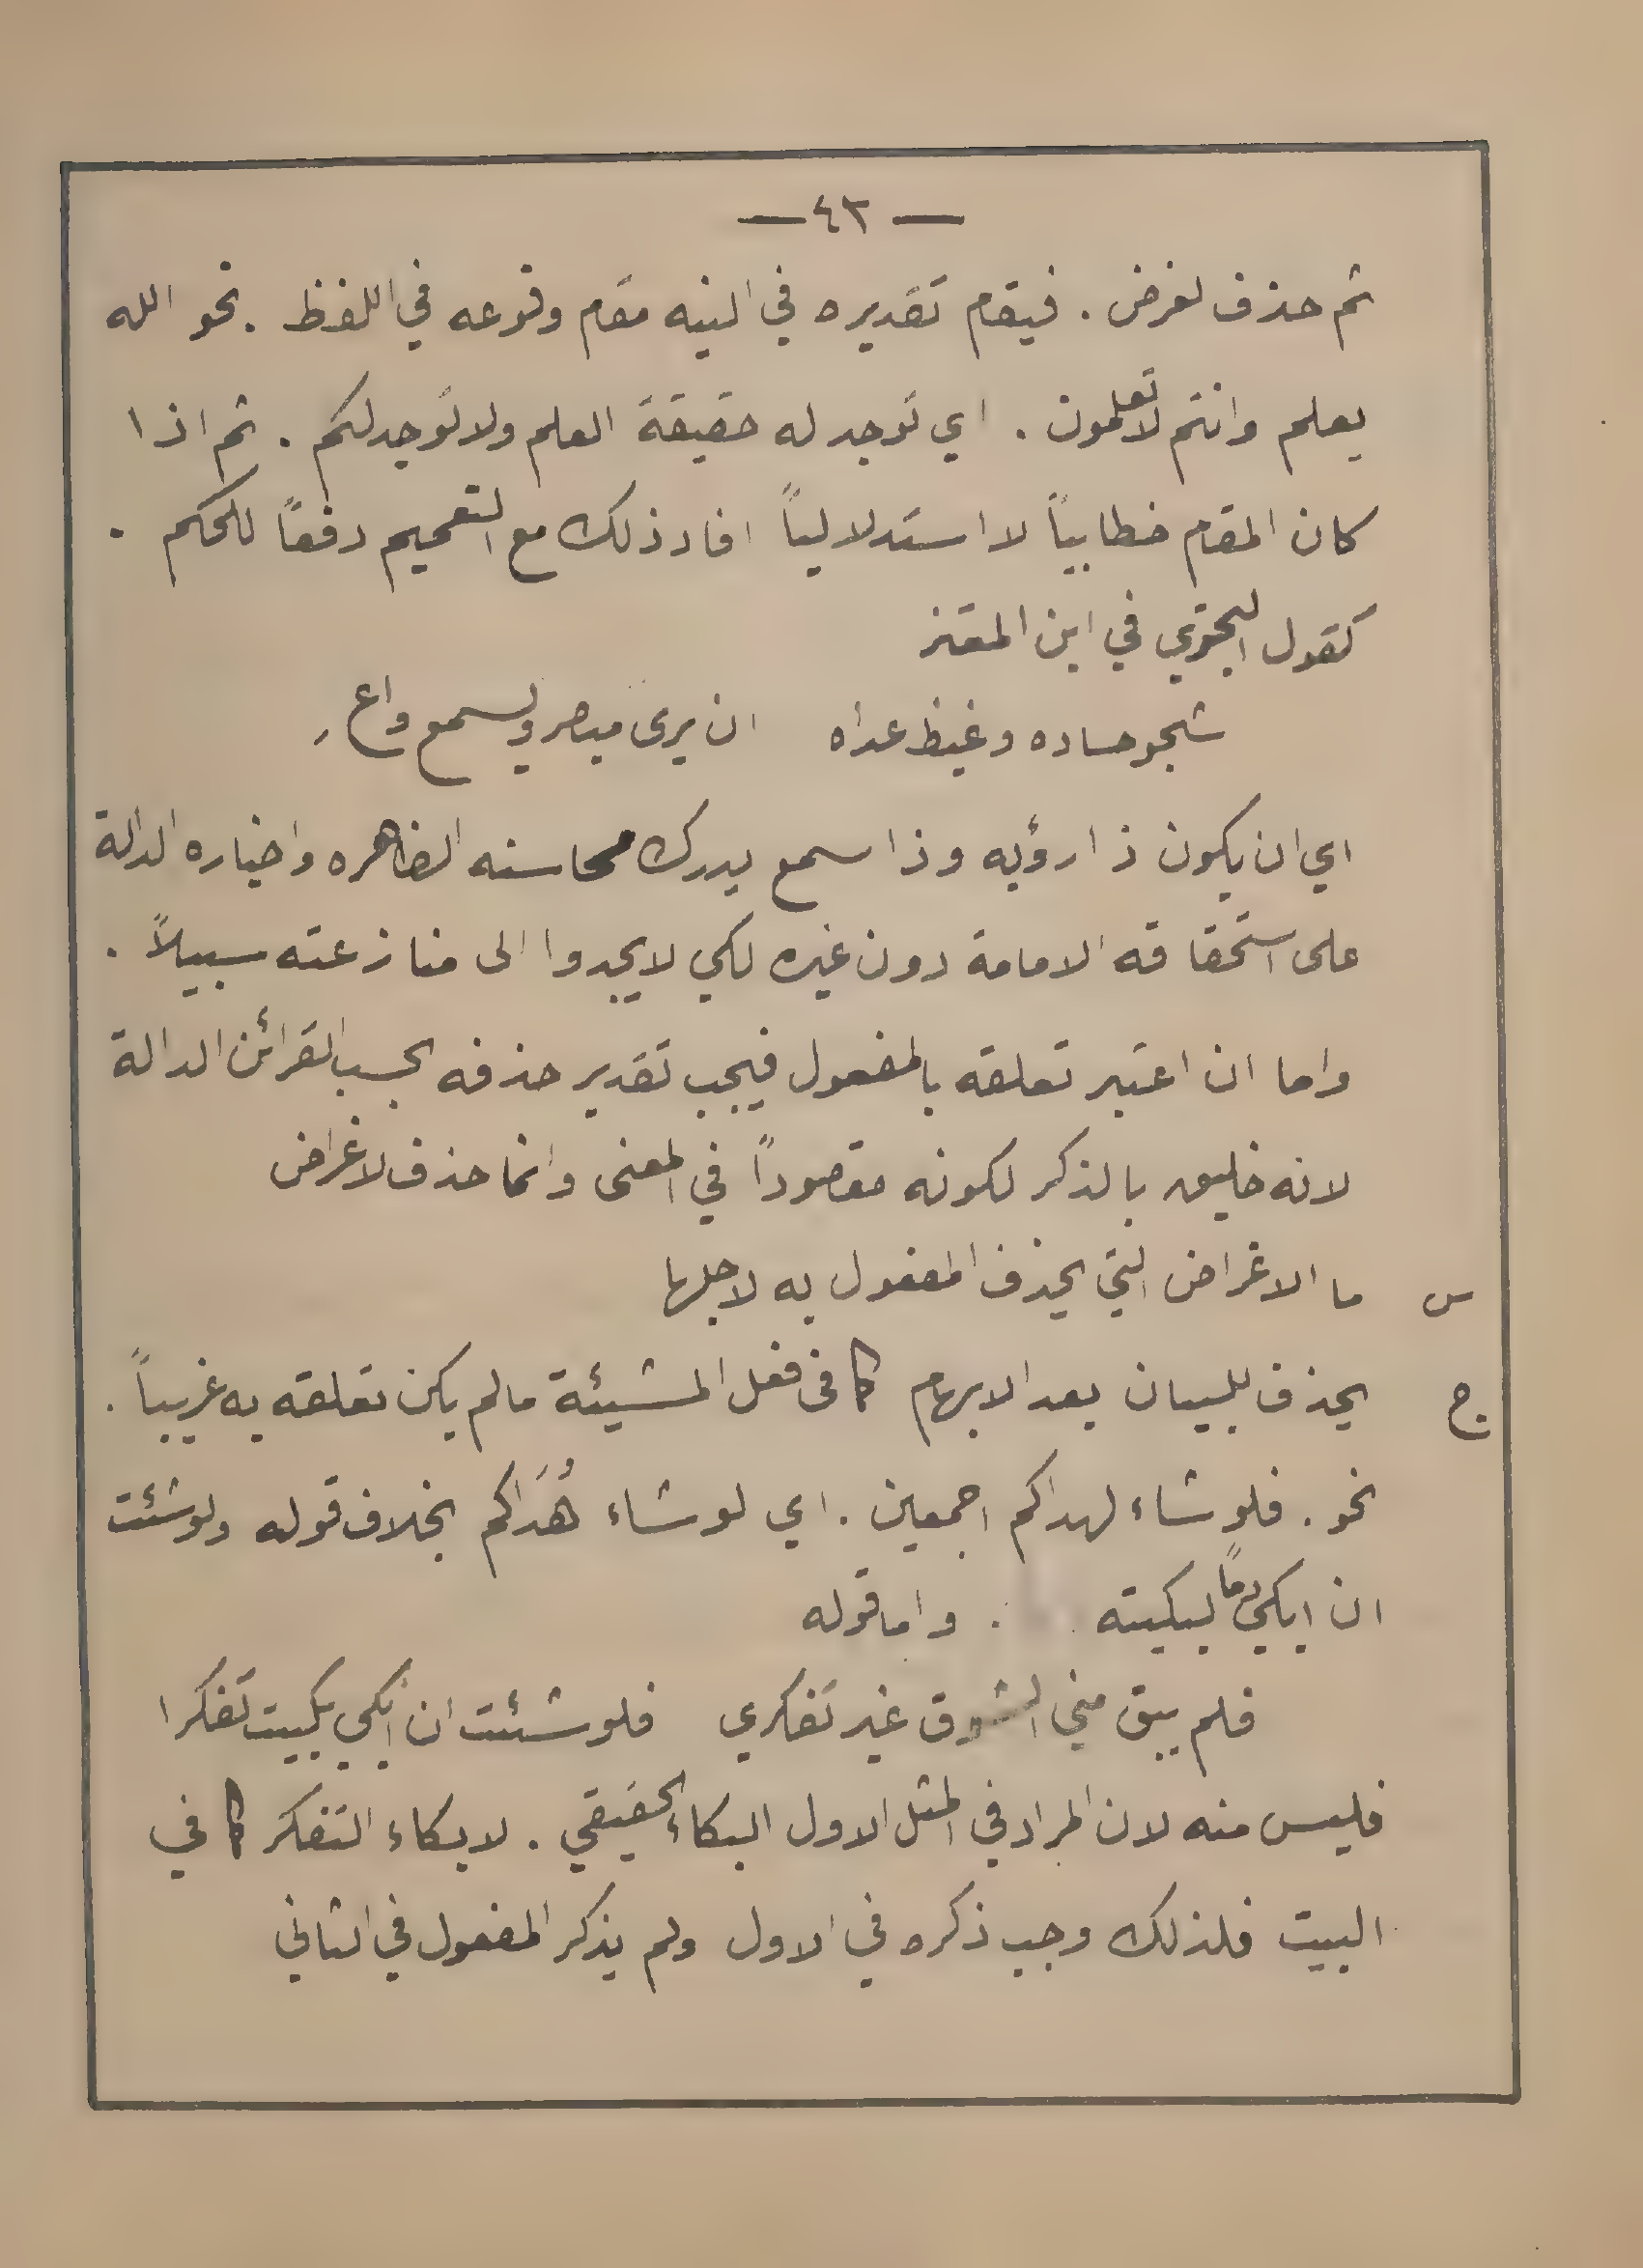 — ٤٣ —
ثم حذف لغرض . فيقام تقديره في النيه مقام وقوعه في اللفظ . نحو الله
يعلم وانتم لا تعلمون . اي توجد له حقيقة العلم ولا توجد لكم . ثم اذا
كان المقام خطابياً لا استدلالياً افاد ذلك مع التعميم دفعاً للحكم .
كقول البحتري في ابن المعتز
شجو حساده وغيظ عداه    ان يرى مبصر ويسمع واع
اي ان يكون ذا رؤيه وذا سمع يدرك محاسنه الظاهره واخباره الدالة
على استحقاقه الامامة دون غيره لكي لا يجدوا الى منازعته سبيلاً .
واما ان اعتبر تعلقه بالمفعول فيجب تقدير حذفه بحسب القرائن الدالة
لانه خليق بالذكر لكونه مقصوداً في المعنى وانما حذف لاغراض
س   ما الاغراض التي يحذف المفعول به لاجلها
ج   يحذف للبيان بعد الابهام كما فى فعل المشيئة ما لم يكن تعلقه به غريباً .
نحو . فلو شاء لهداكم اجمعين . اي لو شاء هُدَاكم بخلاف قوله ولو شئت
ان ابكي دماً لبكيته . واما قوله
فلم يبق مني الشوق غير تفكري    فلو شئت ان ابكي بكيت تفكرا
فليس منه لان المراد في المثل الاول البكاء الحقيقي . لا بكاء التفكر كما في
البيت فلذلك وجب ذكره في الاول ولم يذكر المفعول في الثاني